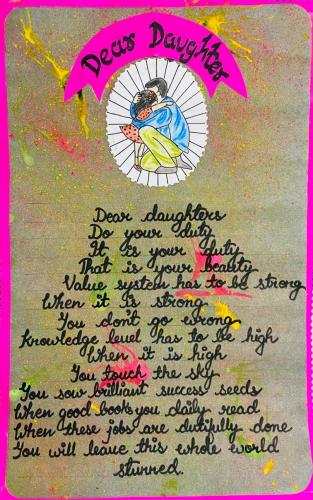 Dear Daughter
Dear daughters
Do your duty
It is your duty
That is your beauty
Value system has to be strong
When it is strong
You don't go wrong
Knowledge level has to be high
When it is high
You touch the sky
You sow brilliant success seeds
When good books you daily read
When these jobs are dutifully done
You will leave this whole world
stunned.